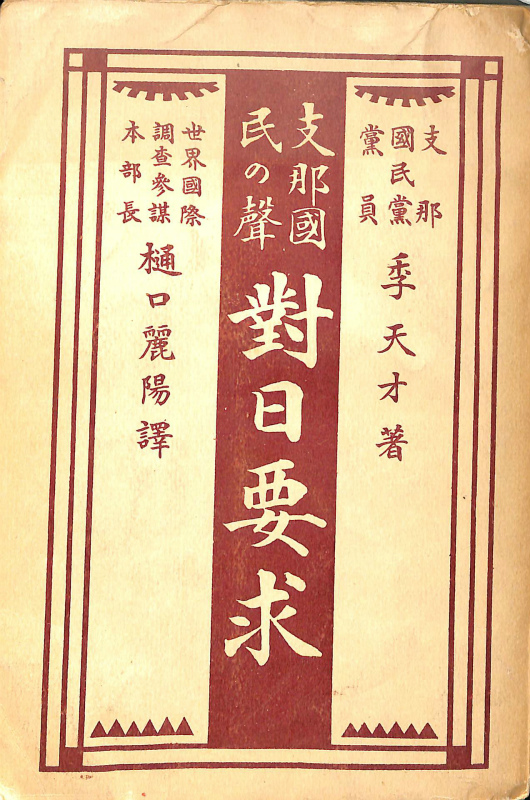 支那
國民黨
黨員
季天才著
支那國
民の聲
對日要求
世界國際
調查參謀
本部長
樋口麗陽譯